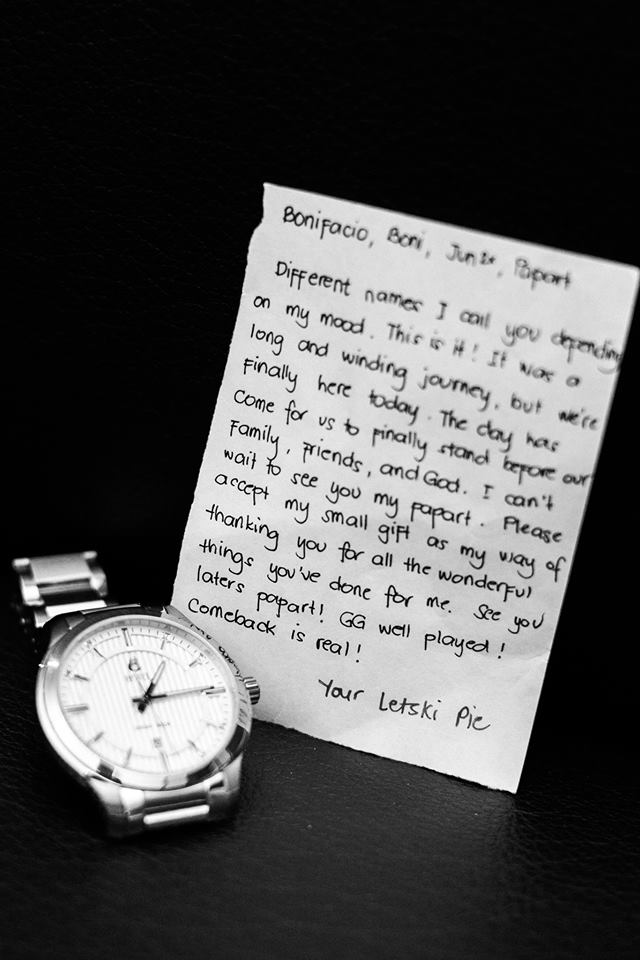 Bonifacio, Boni, Jun2x, Papart
Different names I call you depending
on my mood. This is it! It was a
long and winding journey, but we're
Finally here today. The day has
Come for us to Finally stand before our
Family, Friends, and God. I can't
wait to see you my papart. Please
accept my small gift as my way of
thanking you for all the wonderful
things you've done for me. See you
laters papart! GG well played!
Comeback is real!
Your Letski Pie